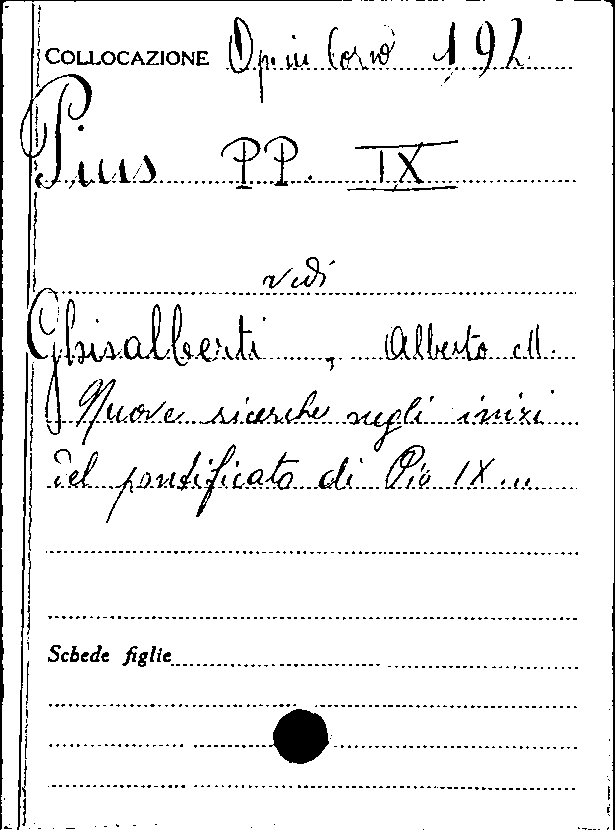 COLLOCAZIONE Op. in Corso 192
Pius PP. IX
vedi
Ghisalberti, Alberto M.
Nuove ricerche negli inizi
del pontificato di Pio IX...
Schede figlie